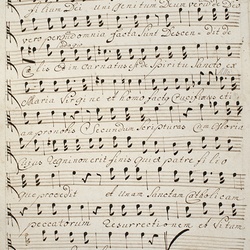 filium Dei unigenitum Deum verum de Deo
vero per omnia facta sunt Descen dit de
Celis Et in Carnatus est de Spiritu Sancto ex
Maria Virgine et homo factus Crucifixus et
am pro nobis secundum scripturas Cum Gloria
Cujus Regni non erit finis Qui ex patre filio
que procedit et unam Sanctam Catholicam
peccatorum Resurrectionem et Vitam